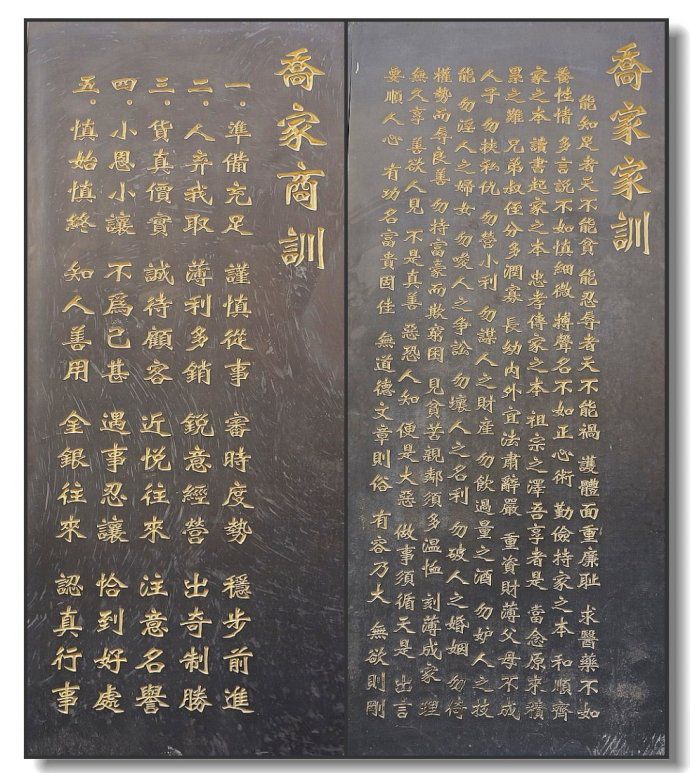 喬家家訓
能知足者天不能貧 能忍辱者天不能禍 護體面重廉耻 求醫藥不如
養性情 多言說不如慎細微 搏聲名不如正心術 勤儉持家之本 和順齊
家之本 讀書起家之本 忠孝傳家之本 祖宗之澤吾享者是 當念原來積
累之難 兄弟叔侄分多潤寡 長幼內外宜法肅辭嚴 重資財薄父母不成
人子 勿挾私仇 勿營小利 勿謀人之財産 勿飲過量之酒 勿妒人之技
能 勿淫人之婦女 勿唆人之爭訟 勿壞人之名利 勿破人之婚姻 勿倚
權勢而辱良善 勿持富豪而欺窮困 見貧苦親鄰須多溫恤 刻薄成家 理
無久享 善欲人見 不是真善 惡恐人知 便是大惡 做事須循天是 出言
要順人心 有功名富貴固佳 無道德文章則俗 有容乃大 無欲則剛
喬家商訓
一. 準備充足 謹慎從事 審時度勢 穩步前進
二. 人弃我取 薄利多銷 銳意經營 出奇制勝
三. 貨真價實 誠待顧客 近悅往來 注意名譽
四. 小恩小讓 不爲已甚 遇事忍讓 恰到好處
五. 慎始慎終 知人善用 金銀往來 認真行事